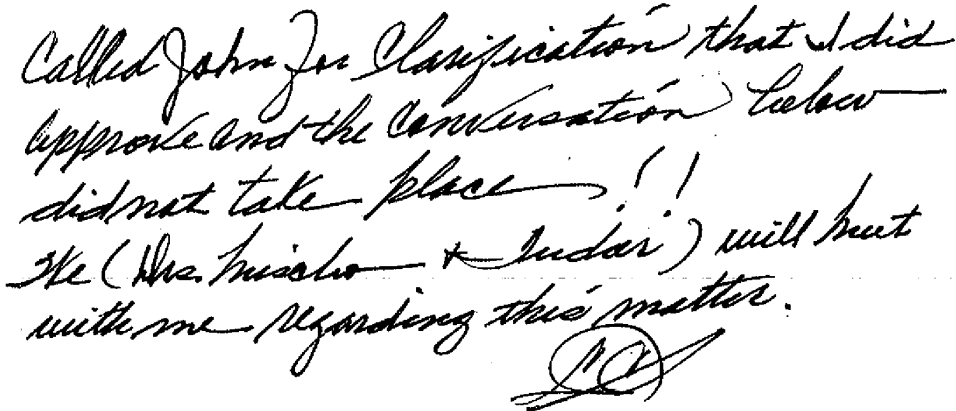 Called John for Clarification that I did
approve and the conversation below
did not take place !!
He (Drs. Mischo & Tudor) will meet
with me regarding this matter.